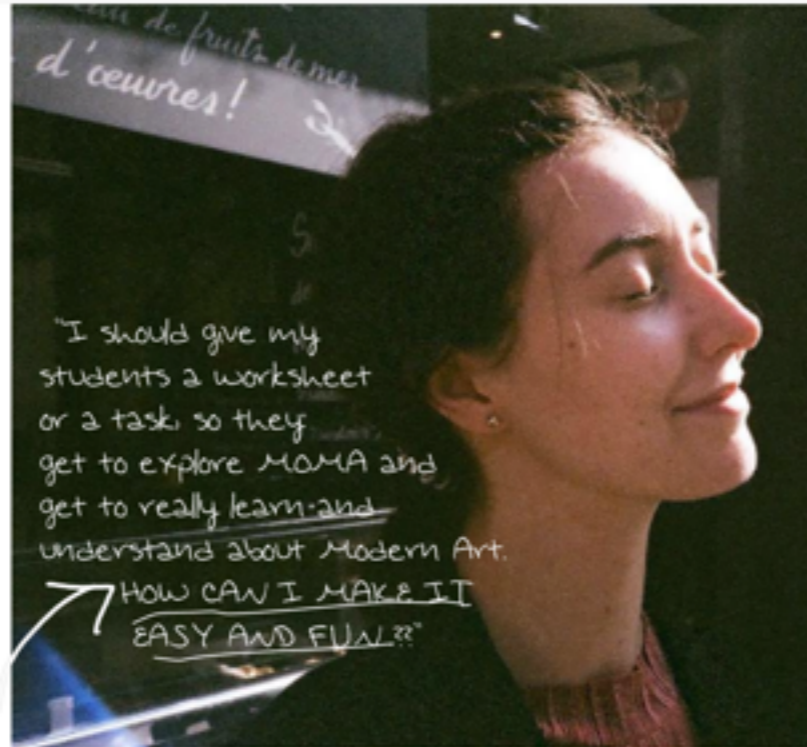 de fruits de mer
d'œuvres!
"I should give my
students a worksheet
or a task, so they
get to explore MOMA and
get to really learn and
understand about Modern Art.
HOW CAN I MAKE IT
EASY AND FUN??"